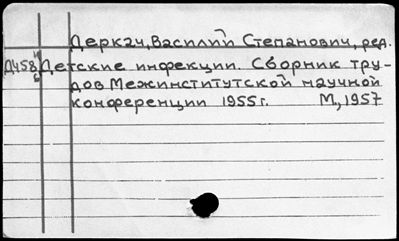 Деркач, Василий Степанович, ред.
Д458 Детские инфекции. Сборник тру-
дов Межинститутской научной
конференции 1955г. М., 1957